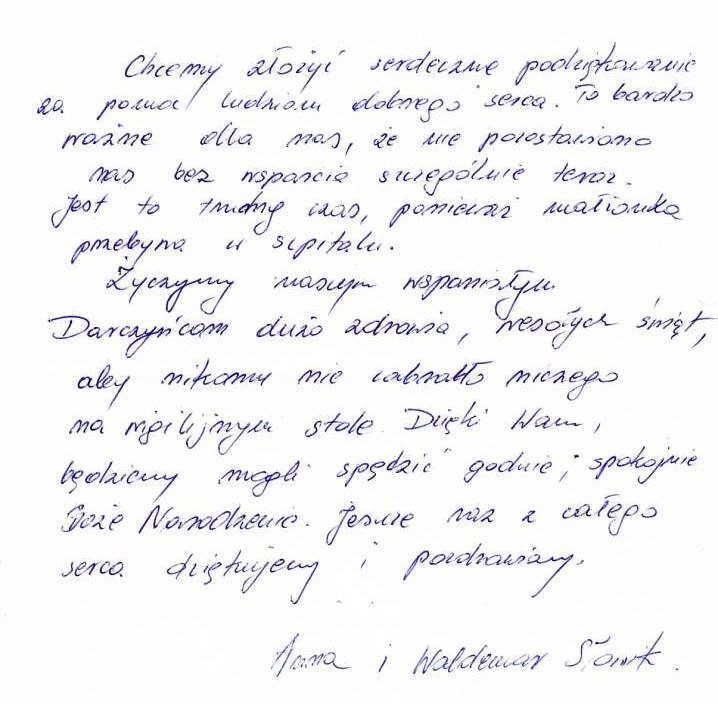 Chcemy złożyć serdeczne podziękowanie
za pomoc ludziom dobrego serca. To bardzo
ważne dla nas, że nie pozostawiono
nas bez wsparcia szczególnie teraz.
Jest to trudny czas, ponieważ małżonka
przebywa w szpitalu.
Życzymy naszym wspaniałym
Darczyńcom dużo zdrowia, wesołych świąt,
aby nikomu nie zabrakło niczego
na wigilijnym stole. Dzięki Wam,
będziemy mogli spędzić godnie i spokojnie
Boże Narodzenie. Jeszcze raz z całego
serca dziękujemy i pozdrawiamy.
Anna i Waldemar